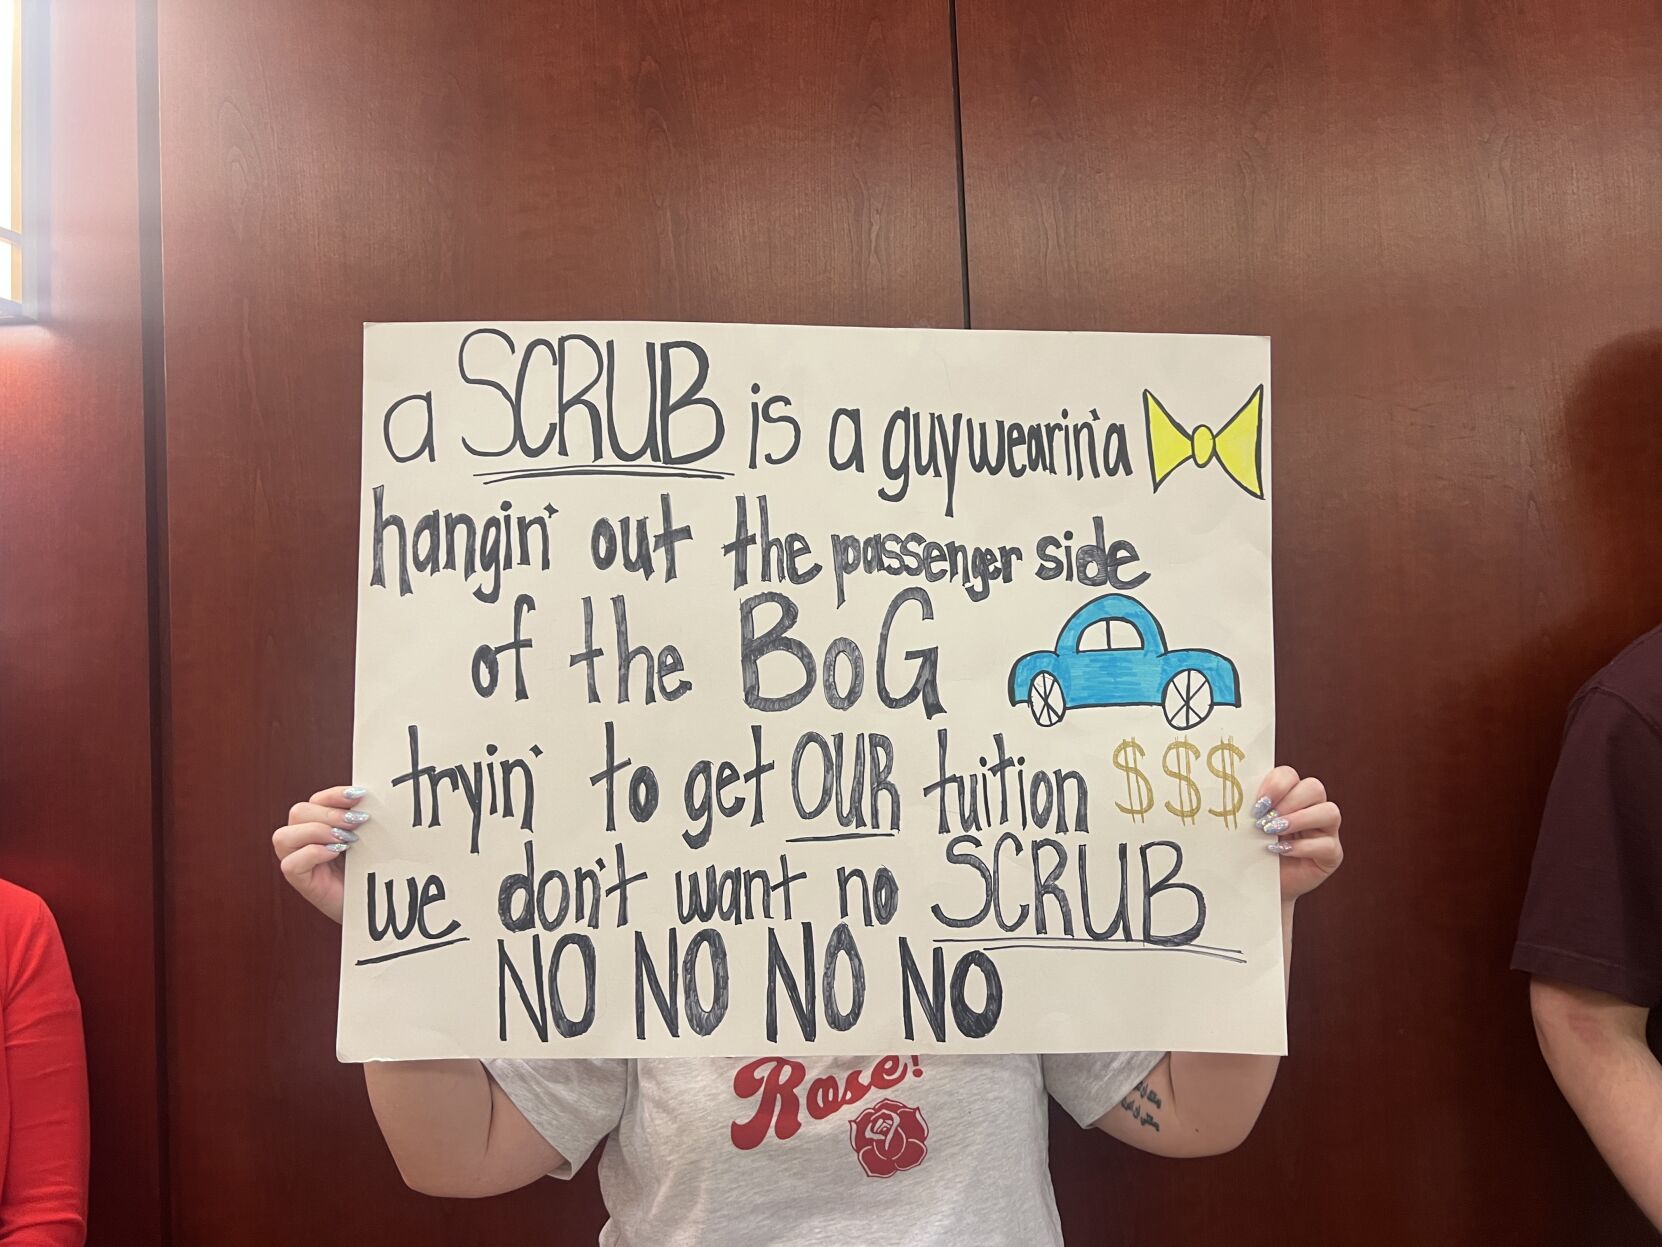 a SCRUB is a guy wearin' a
hangin' out the passenger side
of the BoG
tryin' to get OUR tuition $$$
we don't want no SCRUB
NO NO NO NO
Rose!